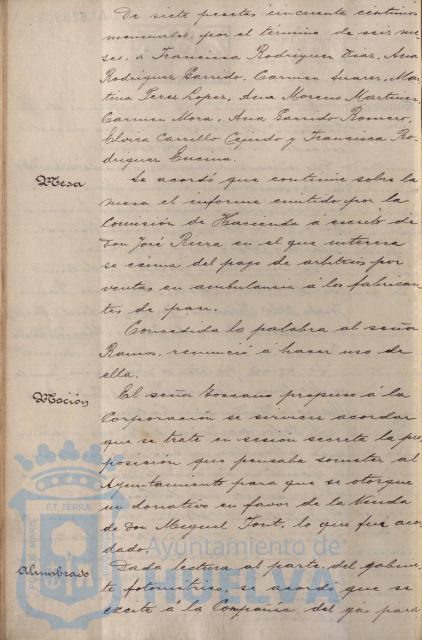 De siete pesetas cincuenta céntimos
mensuales, por el término de seis me-
ses, á Francisca Rodriguez Diaz, Ana
Rodriguez Garrido, Carmen Suarez, Mar-
tina Perez Lopez, Ana Moreno Martinez,
Carmen Mora, Ana Garrido Romero,
Elvira Carrillo Cejudo y Francisca Ro-
driguez Encina.
Mesa
Se acordó que continúe sobre la
mesa el informe emitido por la
Comisión de Hacienda á escrito de
Don José Riera en el que interesa
se exima del pago de arbitrios por
ventas en ambulancia á los fabrican-
tes de pan.
Concedida la palabra al señor
Ramos, renunció á hacer uso de
ella.
Moción
El señor Toscano propuso á la
Corporación se sirviese acordar
que se trate en sesión secreta la pro-
posición que pensaba someter al
Ayuntamiento para que se otorgue
un donativo en favor de la Viuda
de Don Miguel Font, lo que fué acor-
dado.
Alumbrado
Dada lectura al parte del gabine-
te fotométrico, se acordó que se
excite á la Compañía del gas para
ET TERRA
Ayuntamiento de
HUELVA